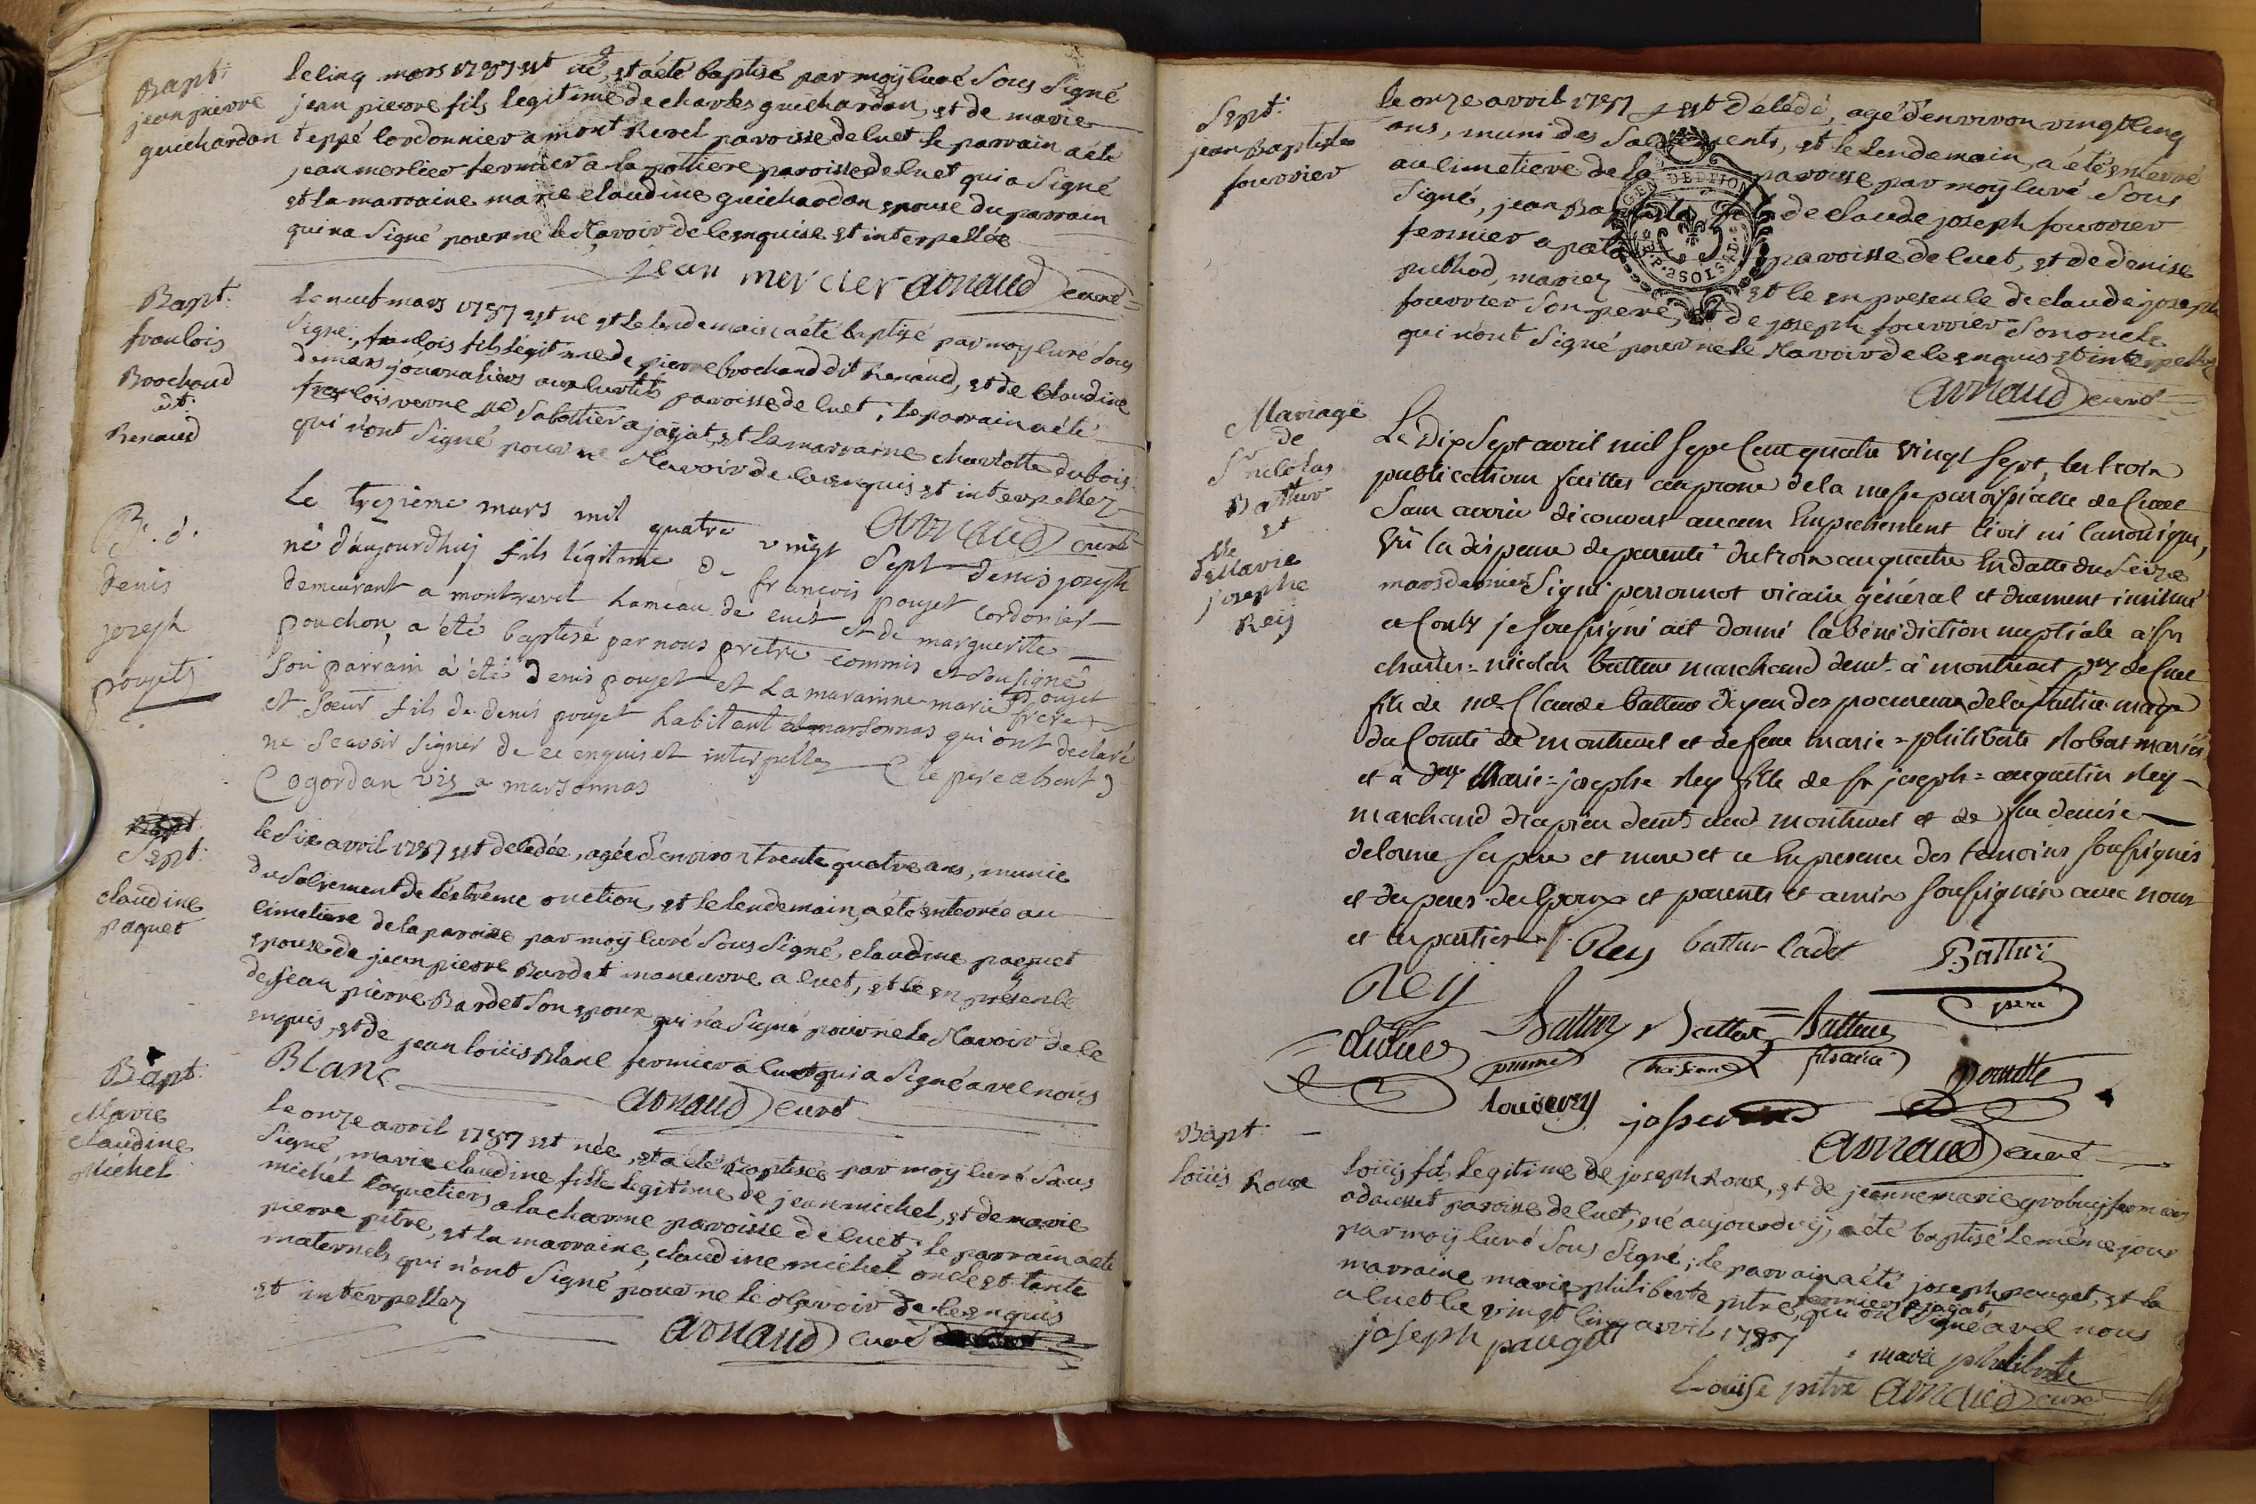 Bapt:
jean pierre
guichardon
le cinq mars 1787 est né, et a été baptisé par moÿ curé sous signé
jean pierre fils legitime de charles guichardon, et de marie
teppé cordonnier a mont Revel paroisse de cuet le parrain a été
jean mercier fermier a la pottiere paroisse de cuet qui a signé
et la marraine marie claudine guichardon epouse du parrain
qui n'a signé pour ne le scavoir de ce enquise et interpellée
jean mercier arnaud curé
Bapt:
francois
Brochand
dit
Renaud
le neuf mars 1787 est né et le lendemain a été baptisé par moy curé sous
signé, francois fils légitime de pierre brochand dit Renaud, et de claudine
demars journaliers aux curtils paroisse de cuet; le parrain a été
francois verne sabottier a jaÿat, et la marraine charlotte dubois
qui n'ont signé pour ne scavoir de ce enquis et interpellez
arnaud curé
B. d.
denis
jozeph
poujet
Le trezième mars mil quatre vingt sept denis joseph
né d'aujourdhuj fils légitime de francois poujet cordonier
demeurant a montrevel hameau de cuet et de marguerite
pouchon, a été baptisé par nous prêtre commis et sousigné
son parrain a été denis poujet et la maraine marie poujet frere
et soeur fils de denis poujet habitant a marsonnas qui ont declaré
ne scavoir signer de ce enquis et interpellez (le pere absent)
Cogordan viz a marsonnas
Sept:
claudine
paquet
le six avril 1787 est decedée, agée d'environ trente quatre ans, munie
du sacrement de l'extrême onction, et le lendemain, a été enterrée au
cimetiere de la paroisse par moÿ curé sous signé, claudine paquet
epouse de jean pierre Bardet manoeuvre a cuet, et ce en présence
de jean pierre Bardet son epoux qui n'a signé pour ne le scavoir de ce
enquis, et de jean loüis Blanc fermier a cuet qui a signé avec nous
Blanc arnaud curé
Bapt:
Marie
claudine
Michel
le onze avril 1787 est née, et a été baptisée par moÿ curé sous
signé, marie claudine fille legitime de jean michel, et de marie
michel coquetiers a la charme paroisse de cuet; le parrain a été
pierre pitre, et la marraine claudine michel oncle et tante
maternels qui n'ont signé pour ne le scavoir de ce enquis
et interpellez
arnaud curé
Sept:
jean Baptiste
fourrier
le onze avril 1787 est décédé, agé d'environ vingt cinq
ans, muni des sacrements, et le lendemain, a été enterré
au cimetiere de la paroisse par moÿ curé sous
signé, jean Baptiste fils de claude joseph fourrier
fermier a paroisse de cuet, et de denise
puthod, mariez et ce en presence de claude joseph
fourrier son pere, et de joseph fourrier son oncle
qui n'ont signé pour ne le scavoir de ce enquis et interpellez
GEN DEDITION
2 SOLS
arnaud curé
Mariage
de
Sr nicolas
Battur
et
dlle Marie
josephe
Reij
Le Dix Sept avril mil sept cent quatre vingt sept, les trois
publications faittes au prone de la messe paroissialle de Cuet
sans avoir découvert aucun Empechement civil ni canonique,
vû la dispence de parenté du trois au quatre En datte du Seize
mars dernier signé perronnot vicaire général et duement insinué
ce Cours je soussigné ait donné la bénédiction nuptiale a sr
charles = nicolas battur marchand demt. à montrevel psse de cuet
fils de me Claude battur doyen des procureurs de la justice mage
du Comté de montrevel et de feue marie = philiberte Robat mariés
et à dlle Marie = josephe Rey fille de sr joseph = augustin Rey
marchand drapier demt. aud. montrevel et de feu denise
delorme ses pere et mere et ce En presence des temoins soussignés
et des peres des Epoux et parents et amis soussignés avec nous
et les parties Rey battur cadet Battur
Reij pere
Battur Battur = Battur
fils ainé
louis Rey
arnaud curé
Bapt:
Loüis Roux
loüis fils légitime de joseph Roux, et de jeanne marie grobuÿ fermiers
paroisse de cuet, né aujourdhuÿ, a été baptisé le même jour
par moÿ curé sous signé; le parrain a été joseph pauget, et la
marraine marie philiberte pitre, fermiers a jaÿat, qui ont signé avec nous
a cuet le vingt cinq avril 1787
joseph pauget marie philiberte
Loüise pitre arnaud curé